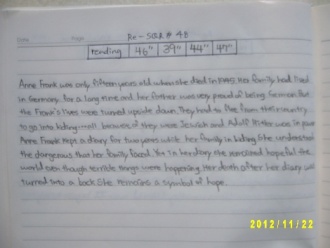 Re-SQ3R # 4B
reading 46" 39" 44" 47"
Anne Frank was only fifteen years old when she died in 1945. Her family had lived
in Germany for a long time and her father was very proud of being German. But
the Frank's lives were turned upside down. They had to flee from their country
to go into hiding because of they were Jewish and Adolf Hitler was in power
Anne Frank kept a diary for two years while her family in hiding. She understood
the dangerous that her family faced. Yet in her diary she remained hopeful the
world even though terrible things were happening. Her death after her diary was
turned into a book. She remains a symbol of hope.
2012/11/22